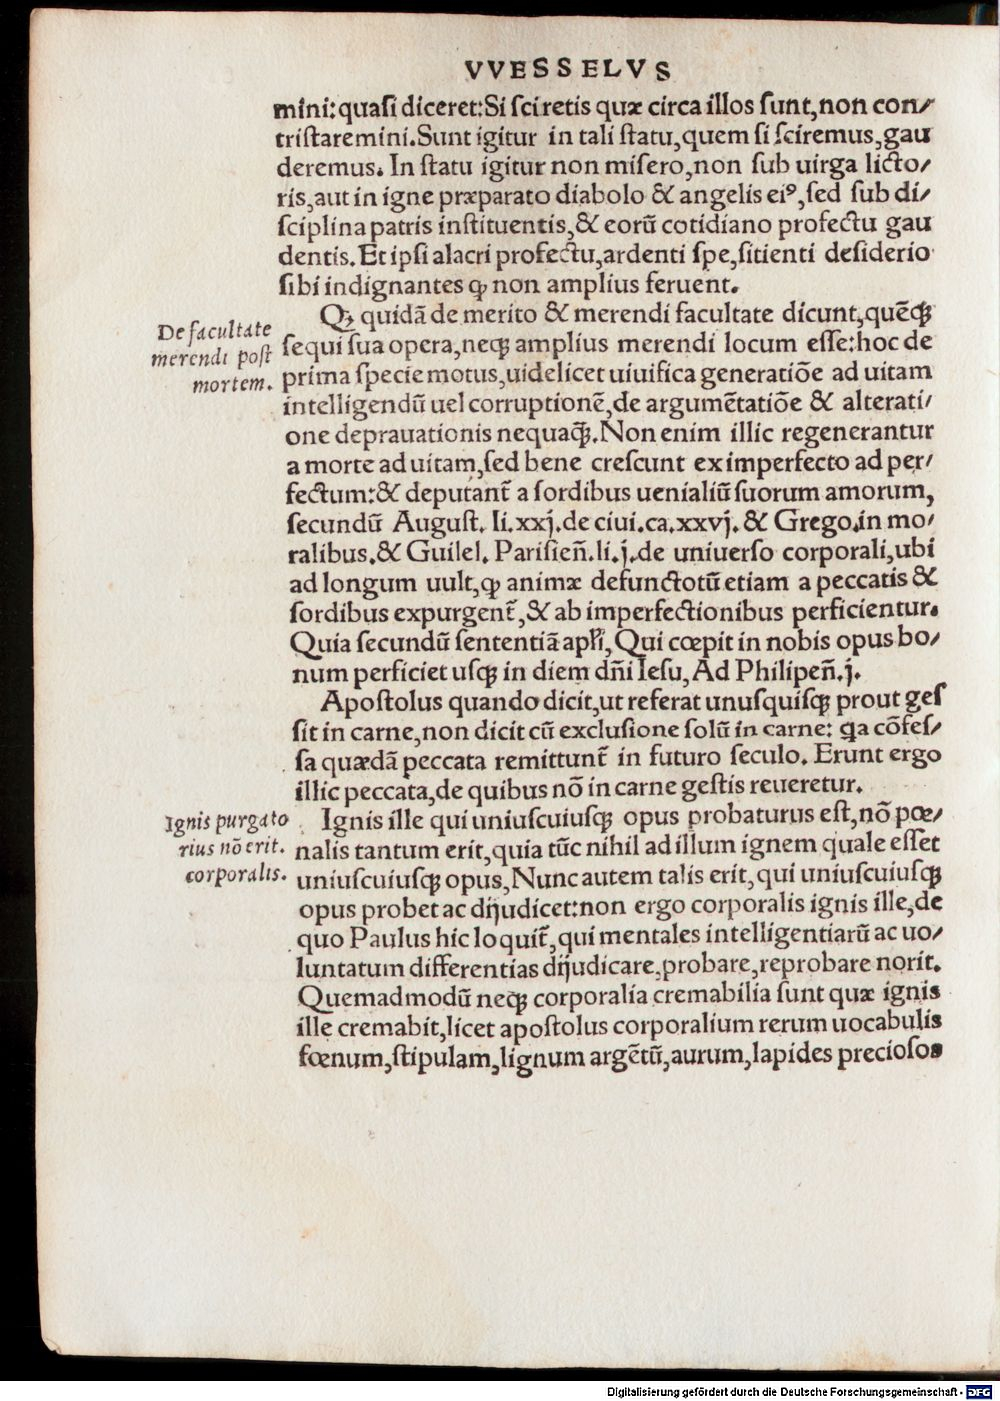 VVESSELVS
mini: quasi diceret: Si sciretis quæ circa illos sunt, non con/
tristaremini. Sunt igitur in tali statu, quem si sciremus, gau
deremus. In statu igitur non misero, non sub uirga licto/
ris, aut in igne præparato diabolo & angelis eiꝰ, sed sub di/
sciplina patris instituentis, & eorū cotidiano profectu gau
dentis. Et ipsi alacri profectu, ardenti spe, sitienti desiderio
sibi indignantes ꝙ non amplius feruent.
De facultate
merendi post
mortem.
Qꝫ quidā de merito & merendi facultate dicunt, quēqꝫ
sequi sua opera, neqꝫ amplius merendi locum esse: hoc de
prima specie motus, uidelicet uiuifica generatiōe ad uitam
intelligendū uel corruptionē, de argumētatiōe & alterati/
one deprauationis nequaq̄ꝫ. Non enim illic regenerantur
a morte ad uitam, sed bene crescunt ex imperfecto ad per/
fectum: & deputant̄ a sordibus uenialiū suorum amorum,
secundū August. li. xxj. de ciui. ca. xxvj. & Grego. in mo/
ralibus. & Guilel. Parisien̄. li. j. de uniuerso corporali, ubi
ad longum uult, ꝙ animæ defunctotū etiam a peccatis &
sordibus expurgent̄, & ab imperfectionibus perficientur.
Quia secundū sententiā apl̄i, Qui cœpit in nobis opus bo/
num perficiet usqꝫ in diem dn̄i Iesu, Ad Philipen̄. j.
Apostolus quando dicit, ut referat unusquisqꝫ prout ges
sit in carne, non dicit cū exclusione solū in carne: qa cōfes/
sa quædā peccata remittunt̄ in futuro seculo. Erunt ergo
illic peccata, de quibus nō in carne gestis reueretur.
Ignis purgato
rius nō erit.
corporalis.
Ignis ille qui uniuscuiusqꝫ opus probaturus est, nō pœ/
nalis tantum erit, quia tūc nihil ad illum ignem quale esset
uniuscuiusqꝫ opus, Nunc autem talis erit, qui uniuscuiusqꝫ
opus probet ac dijudicet: non ergo corporalis ignis ille, de
quo Paulus hic loquit̄, qui mentales intelligentiarū ac uo/
luntatum differentias dijudicare, probare, reprobare norit.
Quemadmodū neqꝫ corporalia cremabilia sunt quæ ignis
ille cremabit, licet apostolus corporalium rerum uocabulis
fœnum, stipulam, lignum argētū, aurum, lapides preciosos
Digitalisierung gefördert durch die Deutsche Forschungsgemeinschaft - DFG